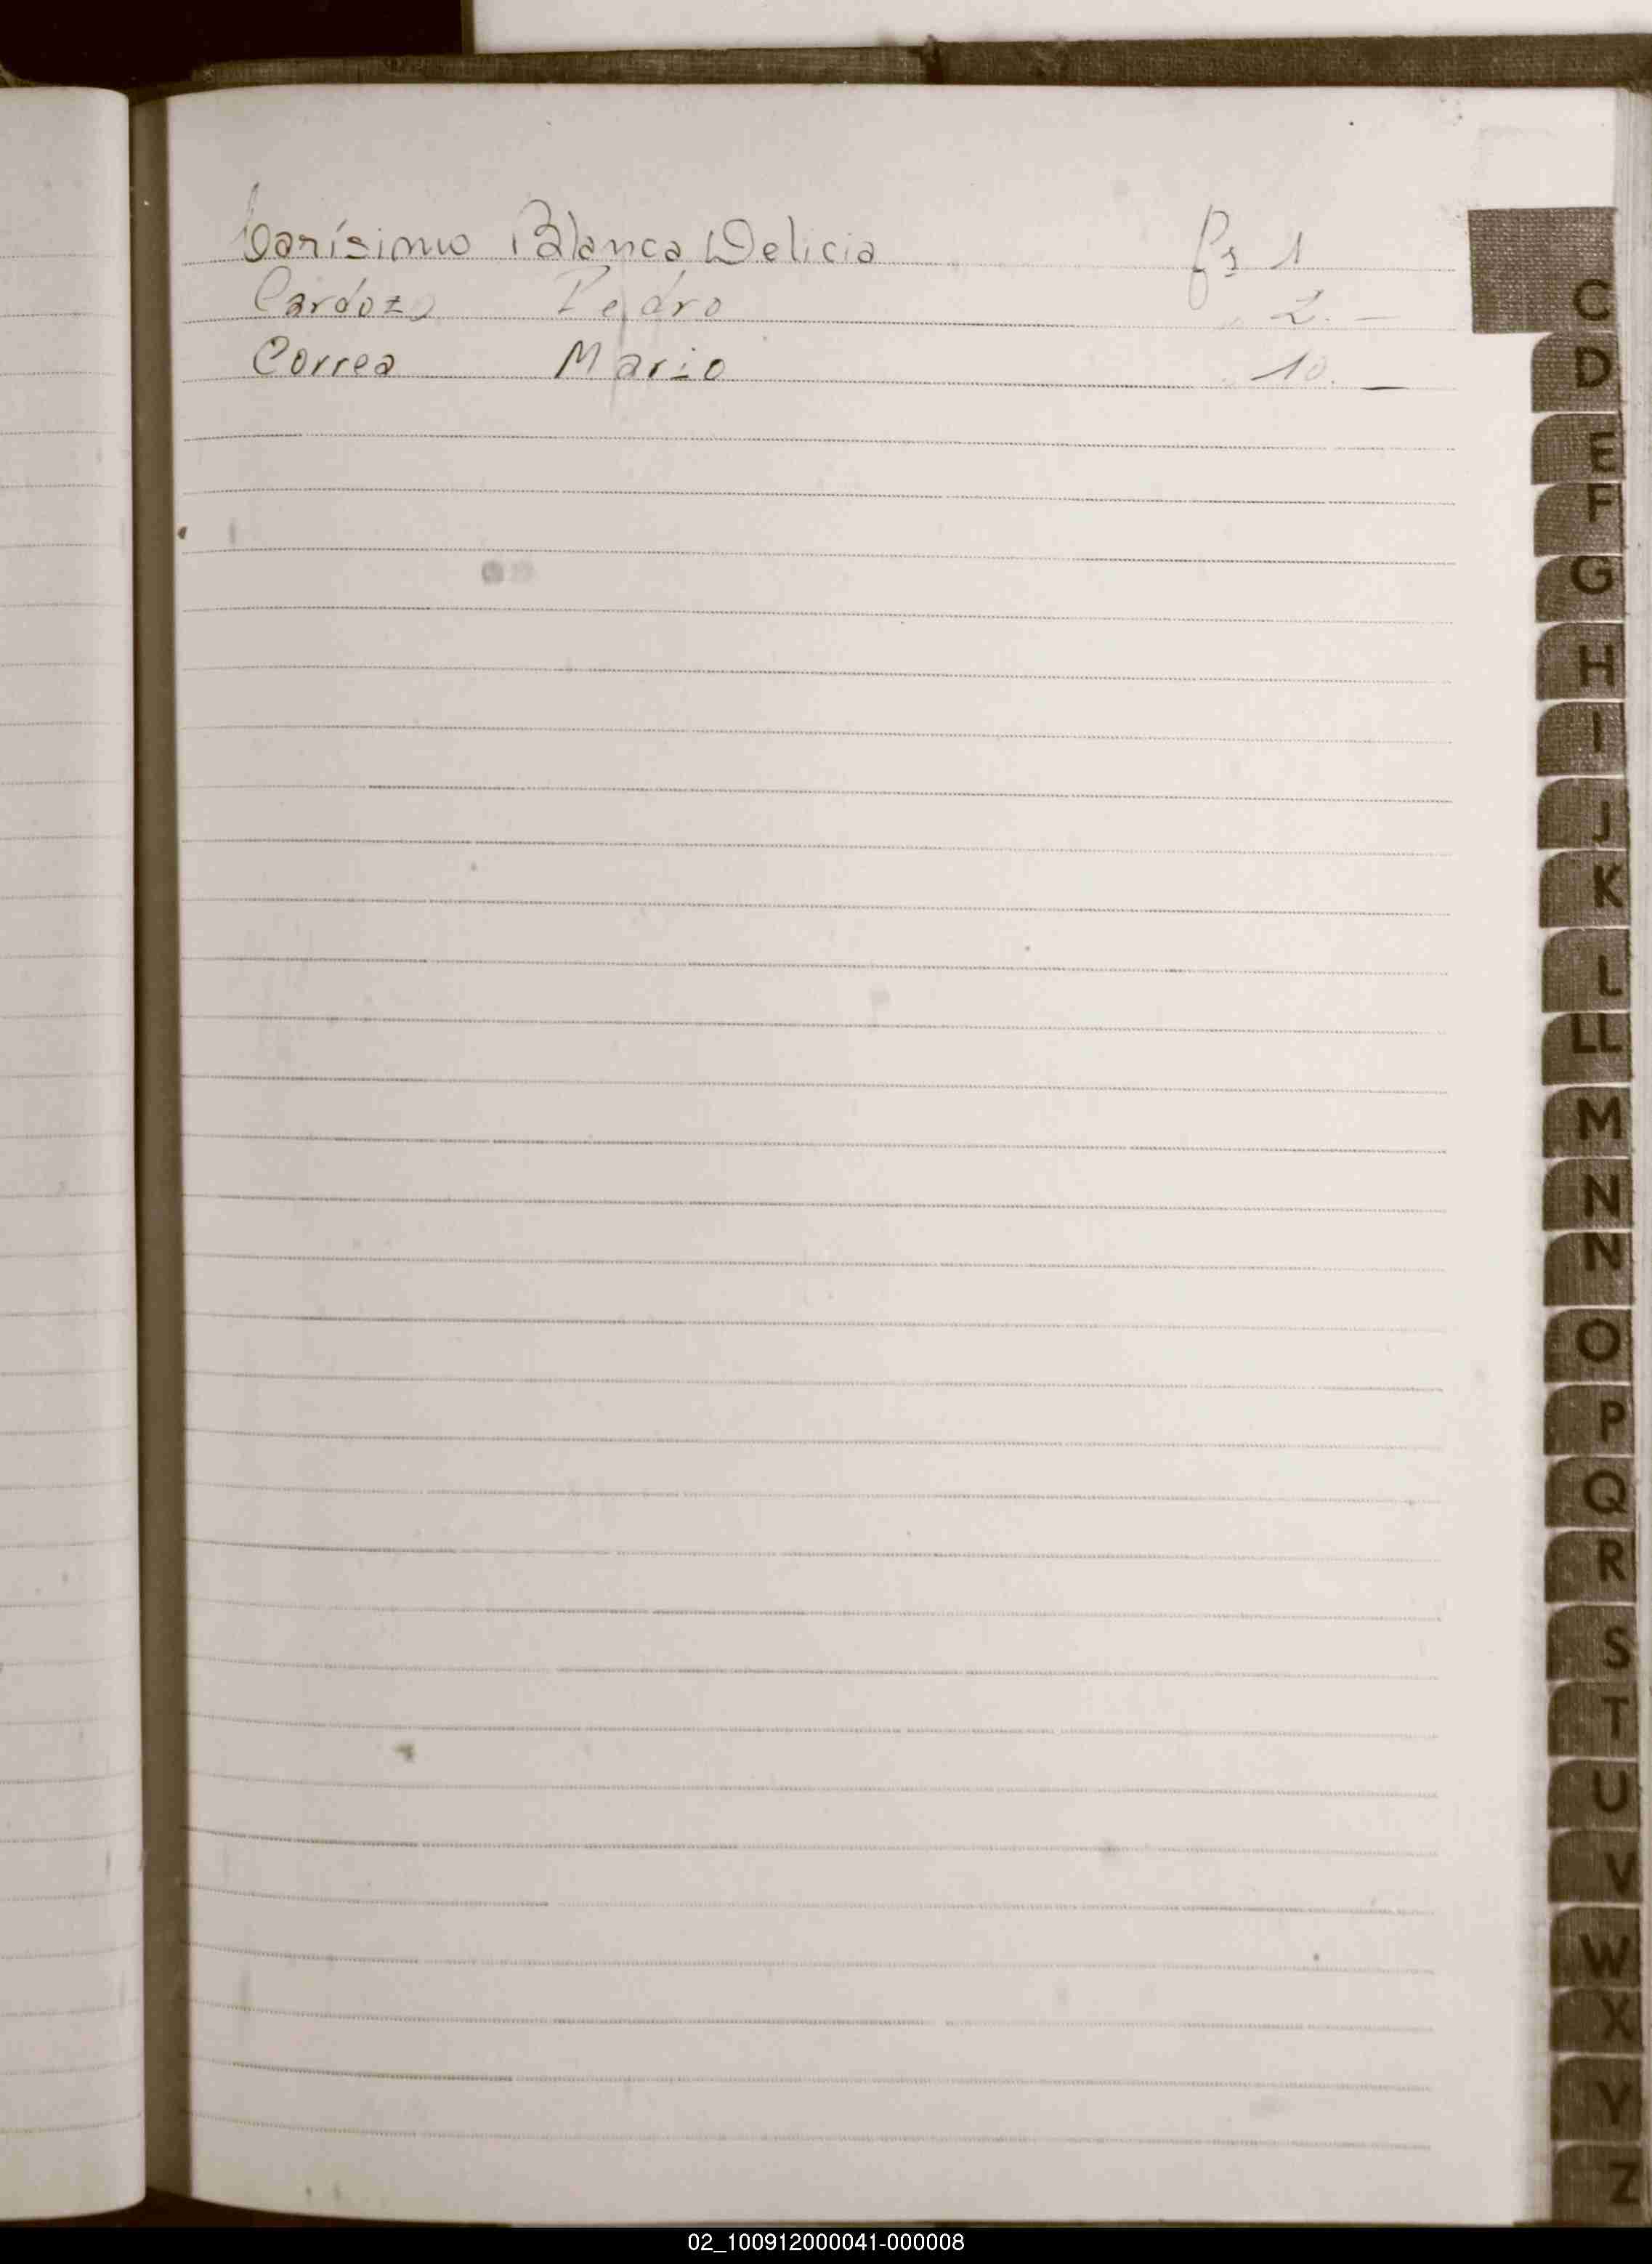 Carísimo Blanca Delicia fs 1
Cardozo Pedro " 2. —
Correa Mario " 10. —
C
D
E
F
G
H
I
J
K
L
LL
M
N
Ñ
O
P
Q
R
S
T
U
V
W
X
Y
Z
02_100912000041-000008